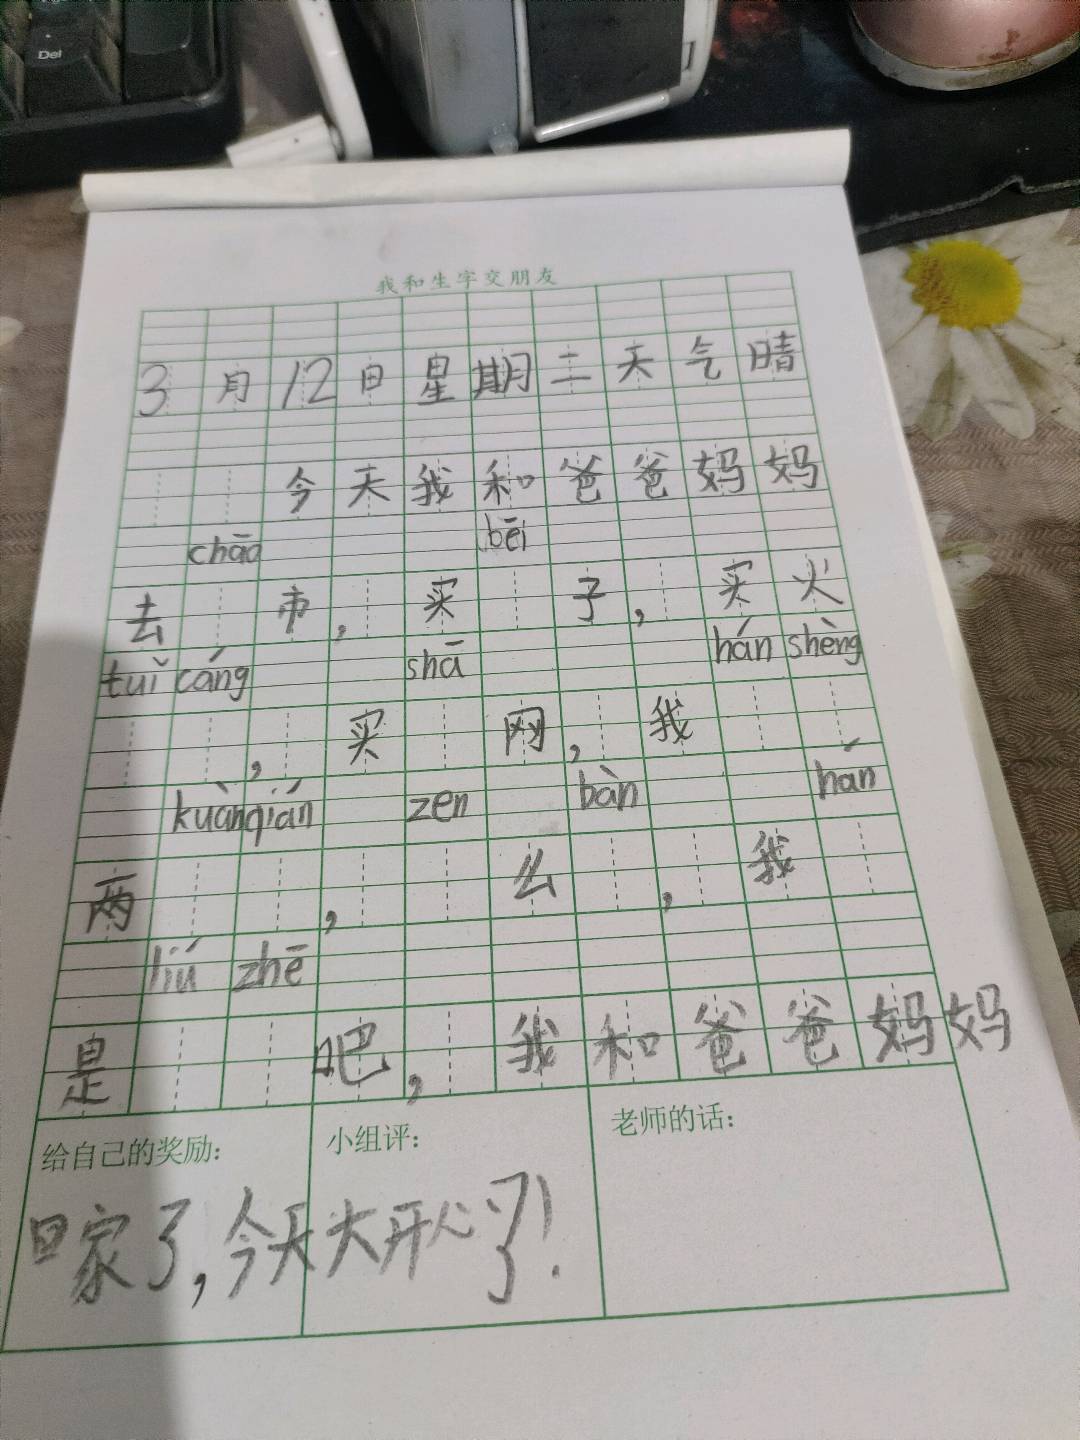 Del
我和生字交朋友
3月12日星期二天气晴
今天我和爸爸妈妈
chāo bēi
去 市，买 子，买火
tuǐ cáng shā hán shèng
，买 网，我
kuàn qián zen bàn hán
两 ， 么 ，我
liú zhē
是 吧，我和爸爸妈妈
给自己的奖励： 小组评： 老师的话：
回家了，今天大开心了！